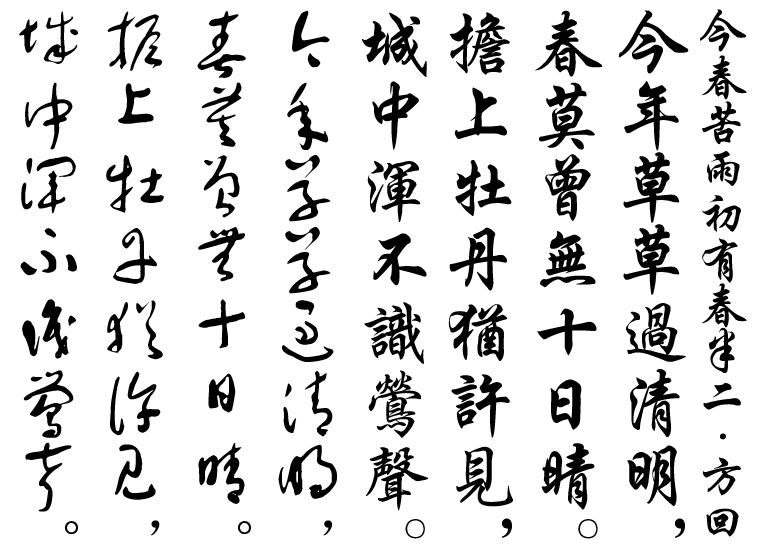 今春苦雨初有春半二・方回
今年草草過清明，
春莫曾無十日晴。
擔上牡丹猶許見，
城中渾不識鶯聲。
今年草草過清明，
春莫曾無十日晴。
擔上牡丹猶許見，
城中渾不識鶯聲。